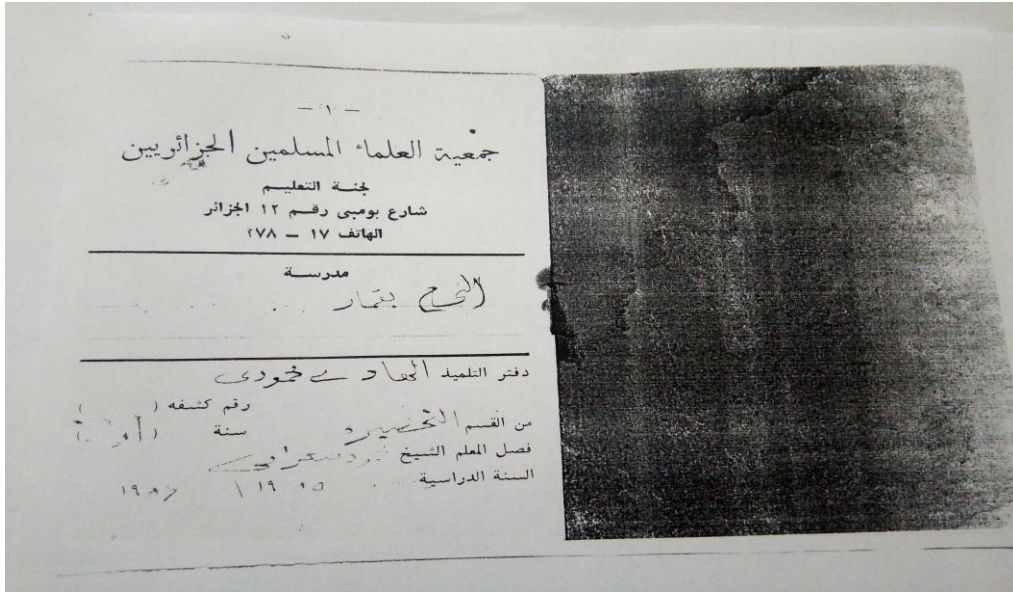 - ١ -
جمعية العلماء المسلمين الجزائريين
لجنة التعليم
شارع بومبى رقم ١٢ الجزائر
الهاتف ١٧ - ٢٧٨
مدرسة
النجاح بقمار
دفتر التلميذ الهادي حمودي
رقم كشفه ( )
من القسم التحضيري سنة ( )
فصل المعلم الشيخ
السنة الدراسية